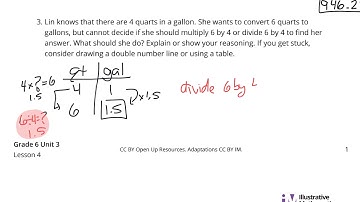 946.2
3. Lin knows that there are 4 quarts in a gallon. She wants to convert 6 quarts to
gallons, but cannot decide if she should multiply 6 by 4 or divide 6 by 4 to find her
answer. What should she do? Explain or show your reasoning. If you get stuck,
consider drawing a double number line or using a table.
qt gal
4 × ? = 6
1.5
4 1
× 1.5
6 1.5
divide 6 by 4
6÷4=?
1.5
Grade 6 Unit 3
Lesson 4
CC BY Open Up Resources. Adaptations CC BY IM.
1
Illustrative